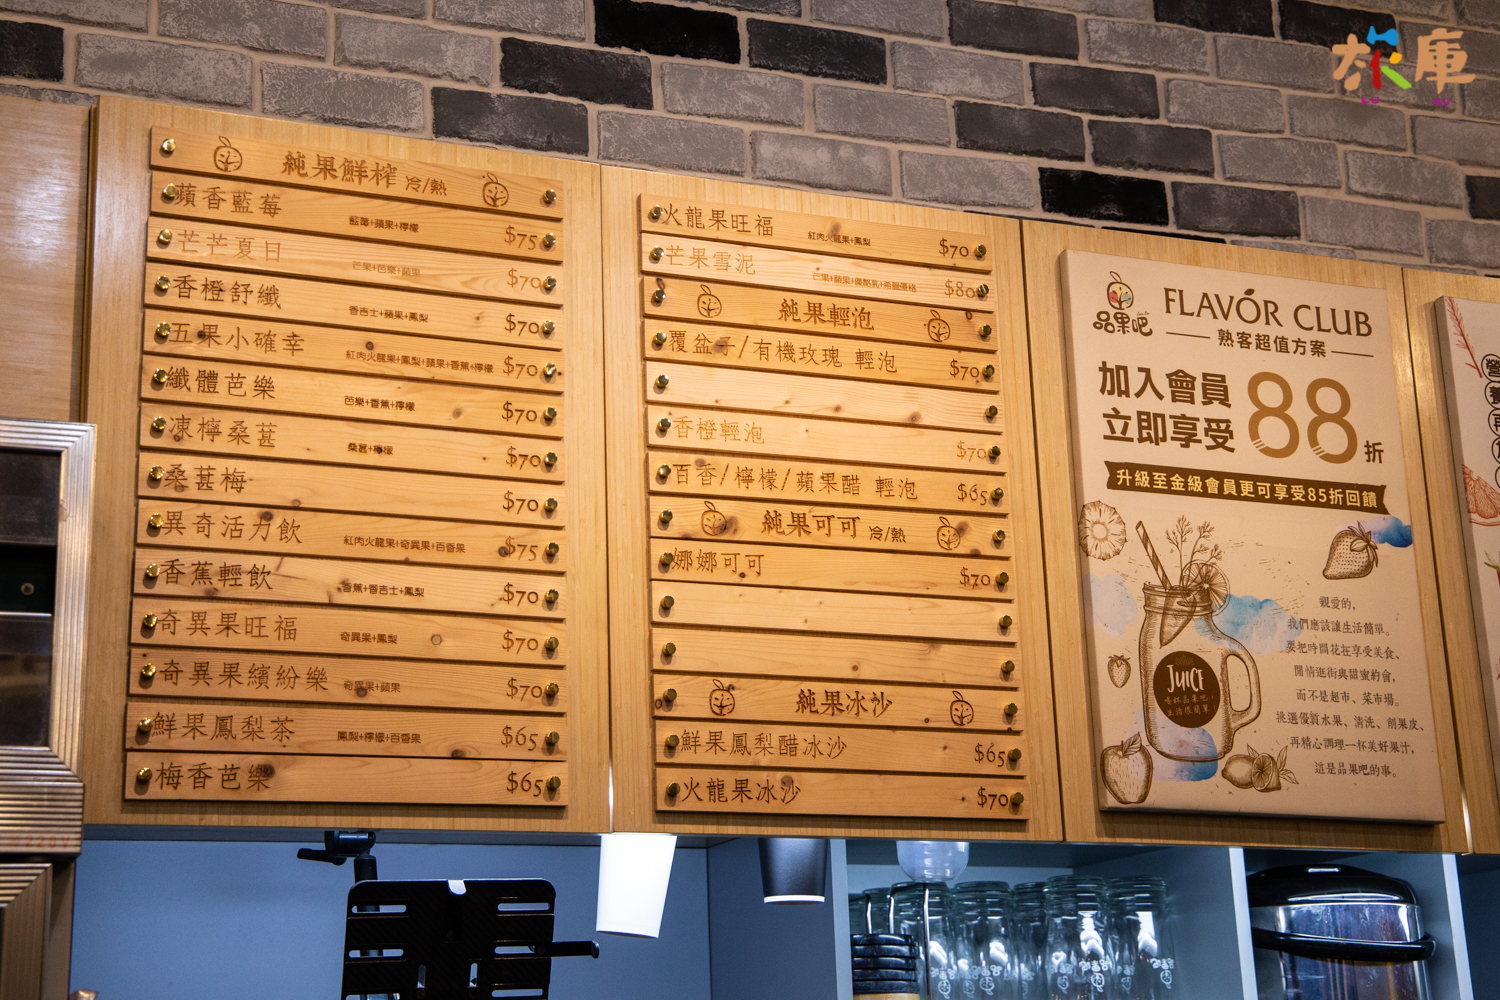 旅庫
純果鮮榨 冷/熱
蘋香藍莓 藍莓+蘋果+檸檬 $75
芒芒夏日 芒果+芭樂+蘋果 $70
香橙舒纖 香吉士+蘋果+鳳梨 $70
五果小確幸 紅肉火龍果+鳳梨+蘋果+香蕉+檸檬 $70
纖體芭樂 芭樂+香蕉+檸檬 $70
凍檸桑葚 桑葚+檸檬 $70
桑葚梅 $70
異奇活力飲 紅肉火龍果+奇異果+百香果 $75
香蕉輕飲 香蕉+香吉士+鳳梨 $70
奇異果旺福 奇異果+鳳梨 $70
奇異果繽紛樂 奇異果+蘋果 $70
鮮果鳳梨茶 鳳梨+檸檬+百香果 $65
梅香芭樂 $65
火龍果旺福 紅肉火龍果+鳳梨 $70
芒果雪泥 芒果+蘋果+優酪乳+希臘優格 $80
純果輕泡
覆盆子/有機玫瑰 輕泡 $70
香橙輕泡 $70
百香/檸檬/蘋果醋 輕泡 $65
純果可可 冷/熱
娜娜可可 $70
純果冰沙
鮮果鳳梨醋冰沙 $65
火龍果冰沙 $70
品果吧
FLAVOR CLUB
熟客超值方案
加入會員
立即享受
88折
升級至金級會員更可享受85折回饋
親愛的,
我們應該讓生活簡單。
要把時間花在享受美食、
閒情逛街與甜蜜約會,
而不是超市、菜市場。
挑選優質水果、清洗、削果皮、
再精心調理一杯美好果汁,
這是品果吧的事。
JUICE
喝杯品果吧,
生活很簡單
營
養
再